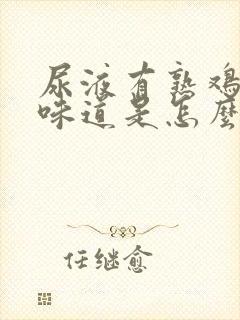 尿液有熟鸡
味道是怎麼
任继愈